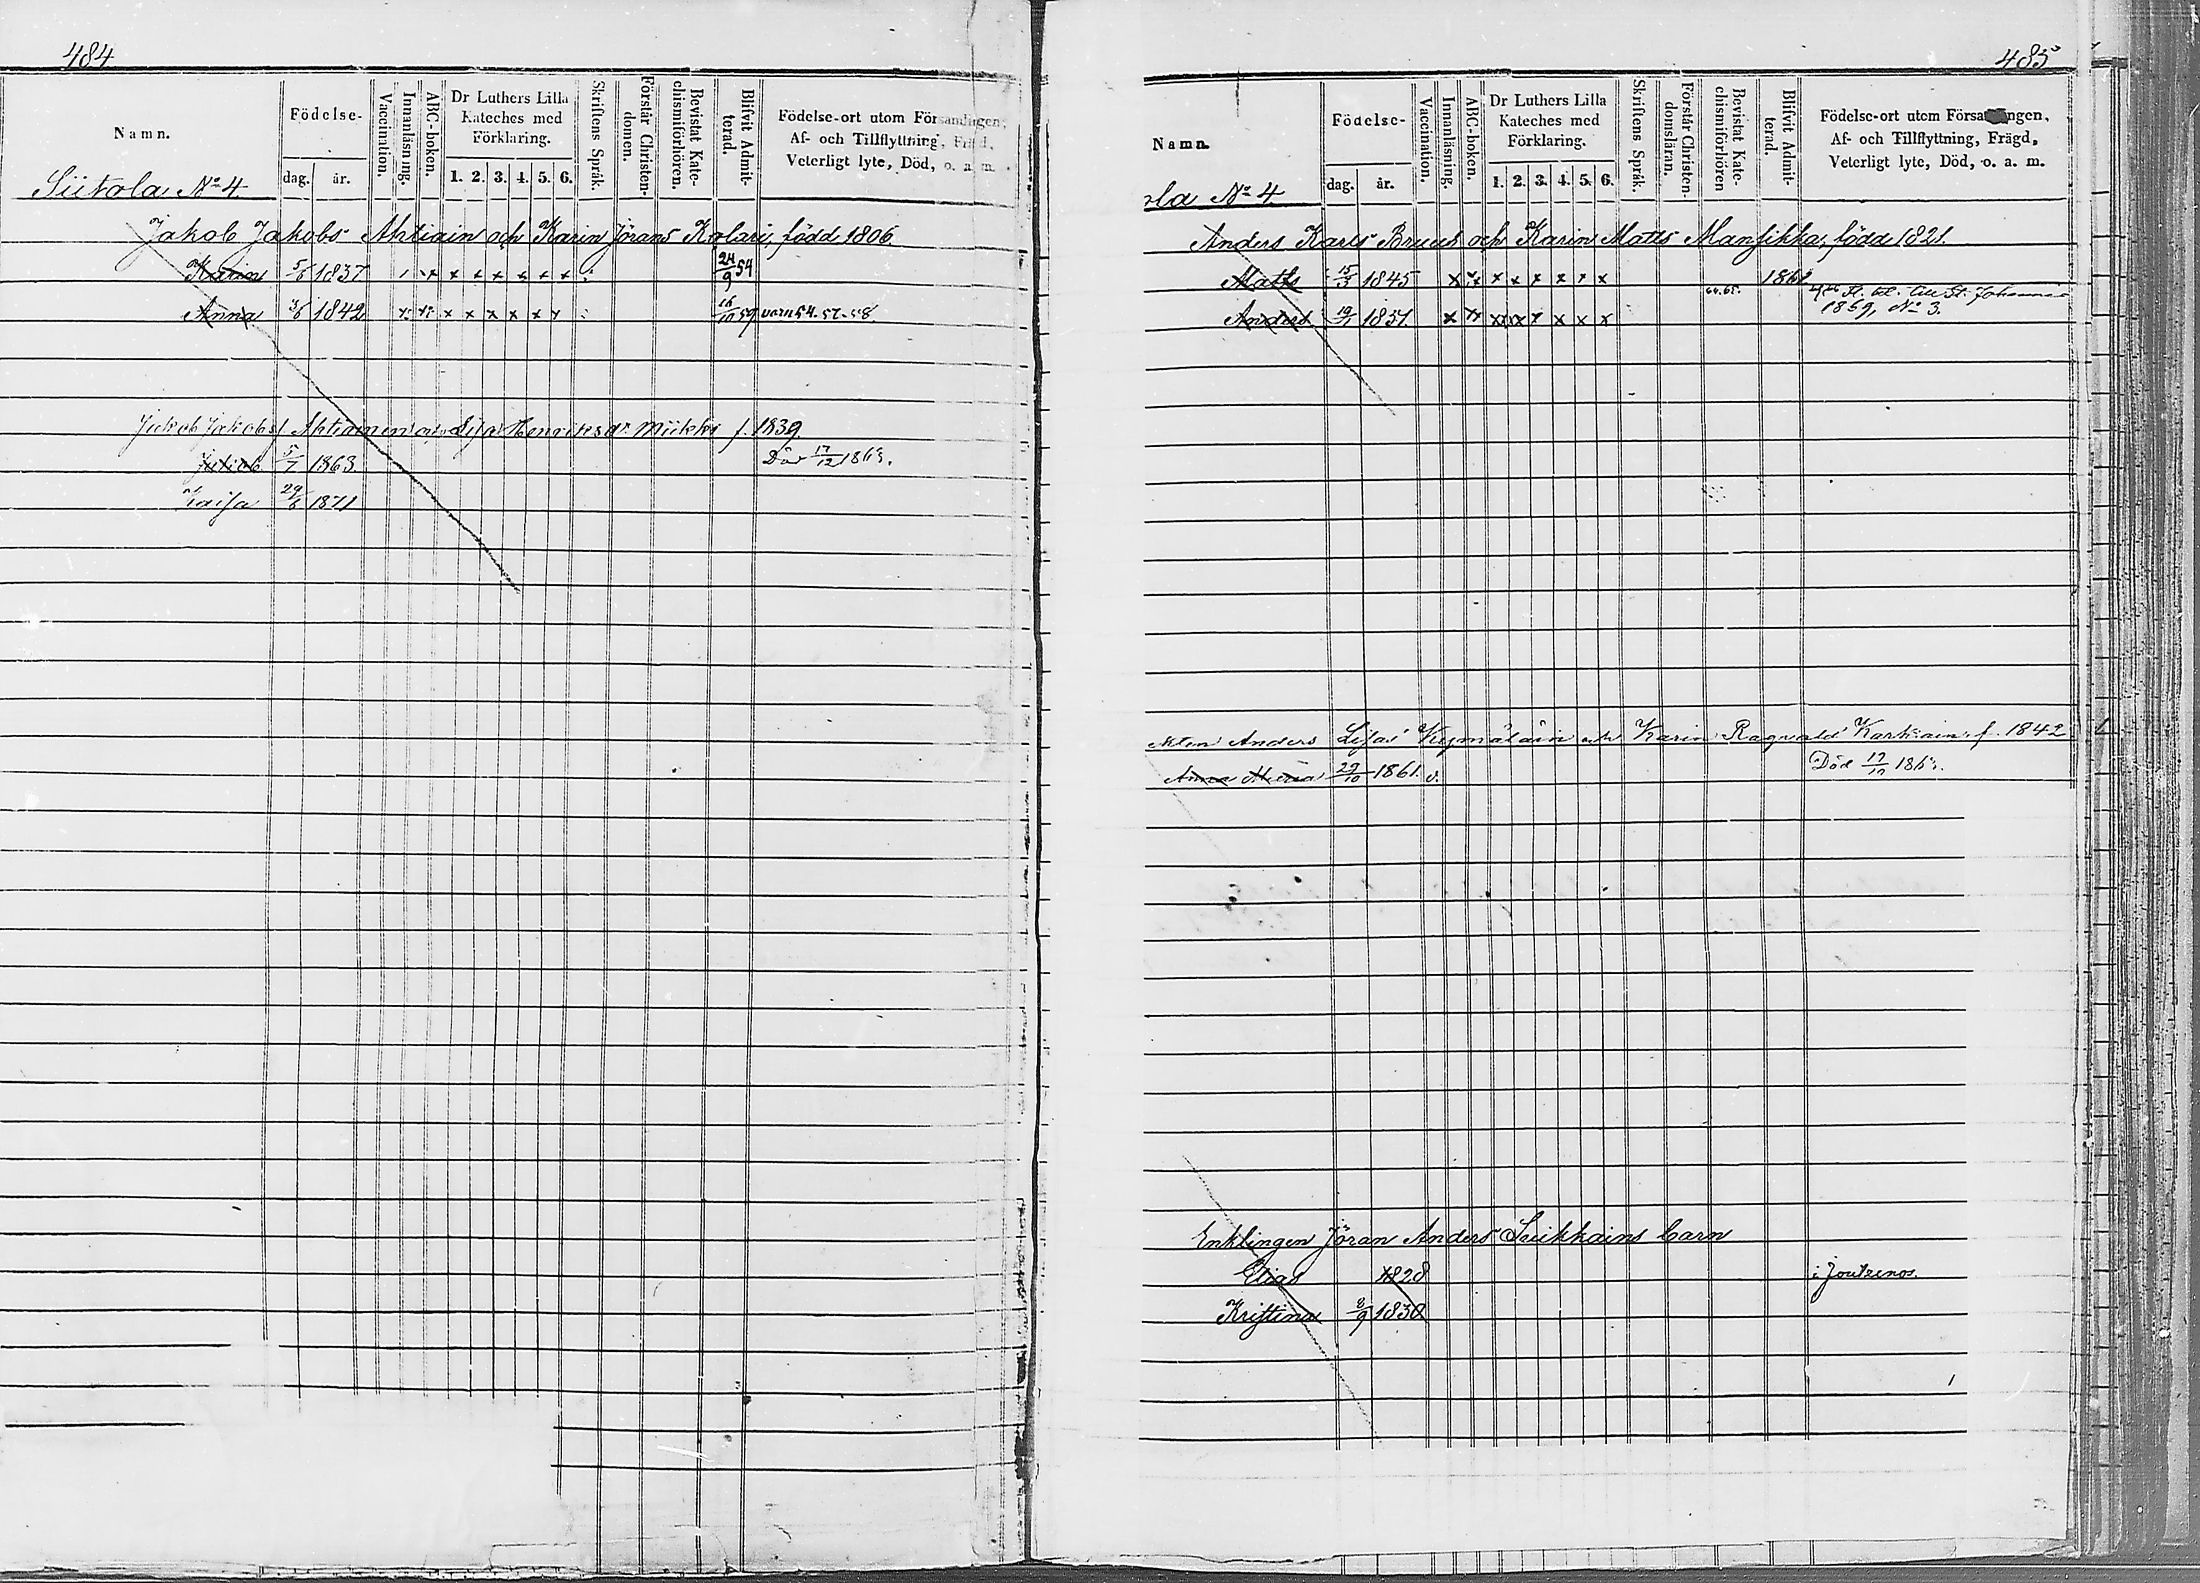 484
Namn.
Födelse-
dag. år.
Vaccination.
Innanläsning.
ABC-boken.
Dr Luthers Lilla
Kateches med
Förklaring.
1. 2. 3. 4. 5. 6.
Skriftens Språk.
Förstår Christen-
domen.
Bevistat Kate-
chismiförhören.
Blifvit Admit-
terad.
Födelse-ort utom Församlingen,
Af- och Tillflyttning, Frägd,
Veterligt lyte, Död, o. a. m.
Siitola No 4
Jakob Jakobs Ahtiain och Karin Jörans Kolari, född 1806
Karin 5/6 1837 24/9 54
Anna 3/6 1842 16/10 59
Jakob Jakobs f. Ahtiainen Henriks dr f. 1839.
5/7 1863 Död 17/12
Kaisa 29/6 1871
485
Namn.
Födelse-
dag. år.
Vaccination.
Innanläsning.
ABC-boken.
Dr Luthers Lilla
Kateches med
Förklaring.
1. 2. 3. 4. 5. 6.
Skriftens Språk.
Förstår Christen-
domsläran.
Bevistat Kate-
chismiförhören
Blifvit Admit-
terad.
Födelse-ort utom Försa ngen,
Af- och Tillflyttning, Frägd,
Veterligt lyte, Död, o. a. m.
ola No 4
Anders Karls Bruus och Karin Matts Mansikka, född 1821.
Matts 15/3 1845 1861
64.65. St. Johannes
1869, No 3.
Anders 19/1 1851
Anders Kymäläin och Karin Ragvald Karkiain f. 1842
Anna Maria 29/10 1861 v. Död
Enklingen Jöran Anders Suikkains barn
Elias 1828 i Joutzenos.
Kristina 8/9 1830